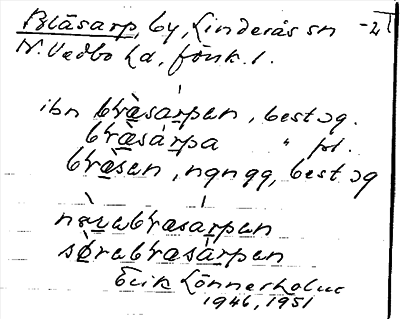 Bläsarp, by, Linderås sn -21
N. Vedbo hd, Jönk. l.
ibn bræ̀sarpen, best sg.
bræ̀sárpa " pl.
bræsen, ngn gg, best sg
nòrabræsarpen
sørabræsàrpen
Erik Lönnerholm
1946, 1951